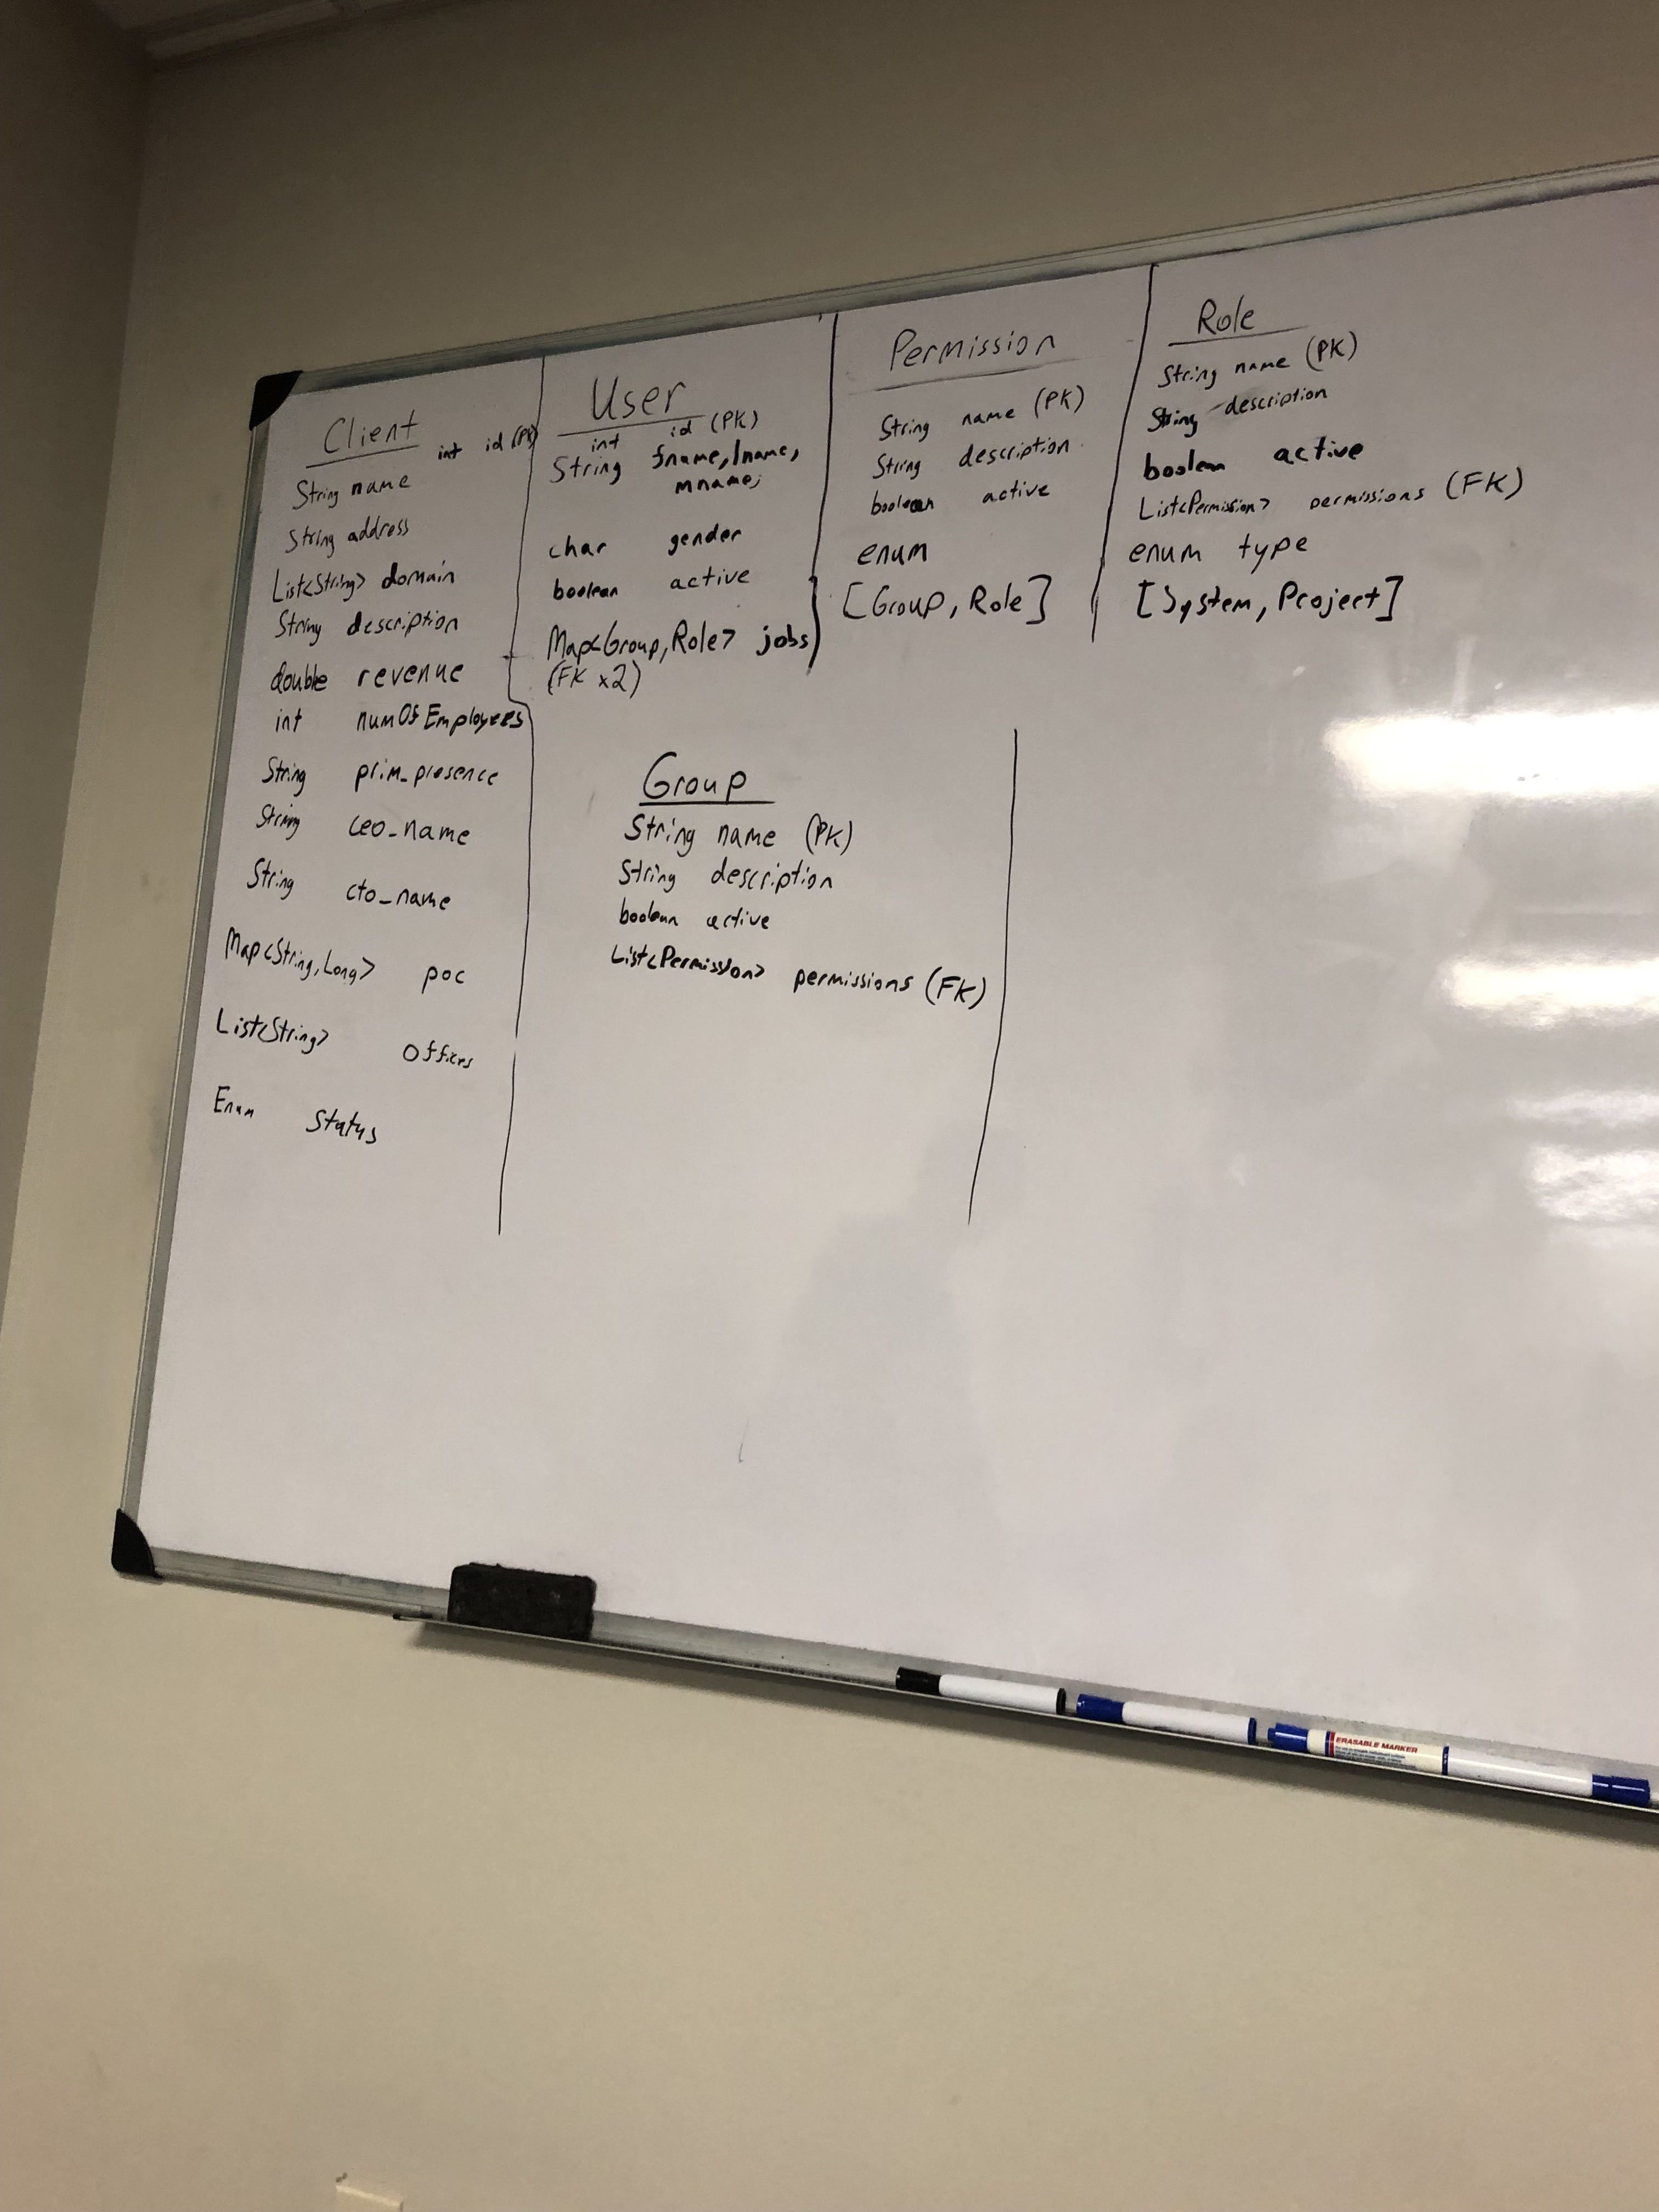 Client
int id (PK)
String name
String address
List<String> domain
String description
double revenue
int numOfEmployees
String prim_presence
String ceo_name
String cto_name
Map<String, Long> poc
List<String> Offices
Enum Status
User
int id (PK)
String fname, lname,
mname;
char gender
boolean active
Map<Group, Role> jobs
(FK x2)
Permission
String name (PK)
String description
boolean active
enum
[Group, Role]
Role
String name (PK)
String description
boolean active
List<Permission> permissions (FK)
enum type
[System, Project]
Group
String name (PK)
String description
boolean active
List<Permission> permissions (FK)
ERASABLE MARKER